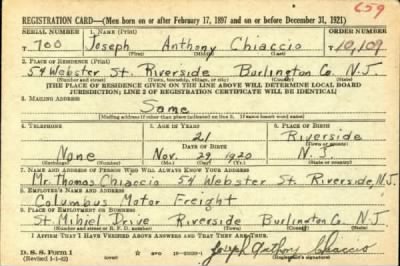 659
REGISTRATION CARD—(Men born on or after February 17, 1897 and on or before December 31, 1921)
SERIAL NUMBER 1. NAME (Print) ORDER NUMBER
T 700 Joseph Anthony Chiaccio 10,109
(First) (Middle) (Last)
2. PLACE OF RESIDENCE (Print)
54 Webster St. Riverside Burlington Co. N.J.
(Number and street) (Town, township, village, or city) (County) (State)
[THE PLACE OF RESIDENCE GIVEN ON THE LINE ABOVE WILL DETERMINE LOCAL BOARD
JURISDICTION; LINE 2 OF REGISTRATION CERTIFICATE WILL BE IDENTICAL]
3. MAILING ADDRESS
Same
[Mailing address if other than place indicated on line 2. If same insert word same]
4. TELEPHONE 5. AGE IN YEARS 6. PLACE OF BIRTH
21 Riverside
DATE OF BIRTH (Town or county)
None Nov. 29 1920 N.J.
(Exchange) (Number) (Mo.) (Day) (Yr.) (State or country)
7. NAME AND ADDRESS OF PERSON WHO WILL ALWAYS KNOW YOUR ADDRESS
Mr. Thomas Chiaccio 54 Webster St. Riverside, N.J.
8. EMPLOYER'S NAME AND ADDRESS
Columbus Motor Freight
9. PLACE OF EMPLOYMENT OR BUSINESS
St. Mihiel Drive Riverside Burlington Co. N.J.
(Number and street or R. F. D. number) (Town) (County) (State)
I AFFIRM THAT I HAVE VERIFIED ABOVE ANSWERS AND THAT THEY ARE TRUE.
D. S. S. Form 1
(Revised 1-1-42) (over) Joseph Anthony Chiaccio